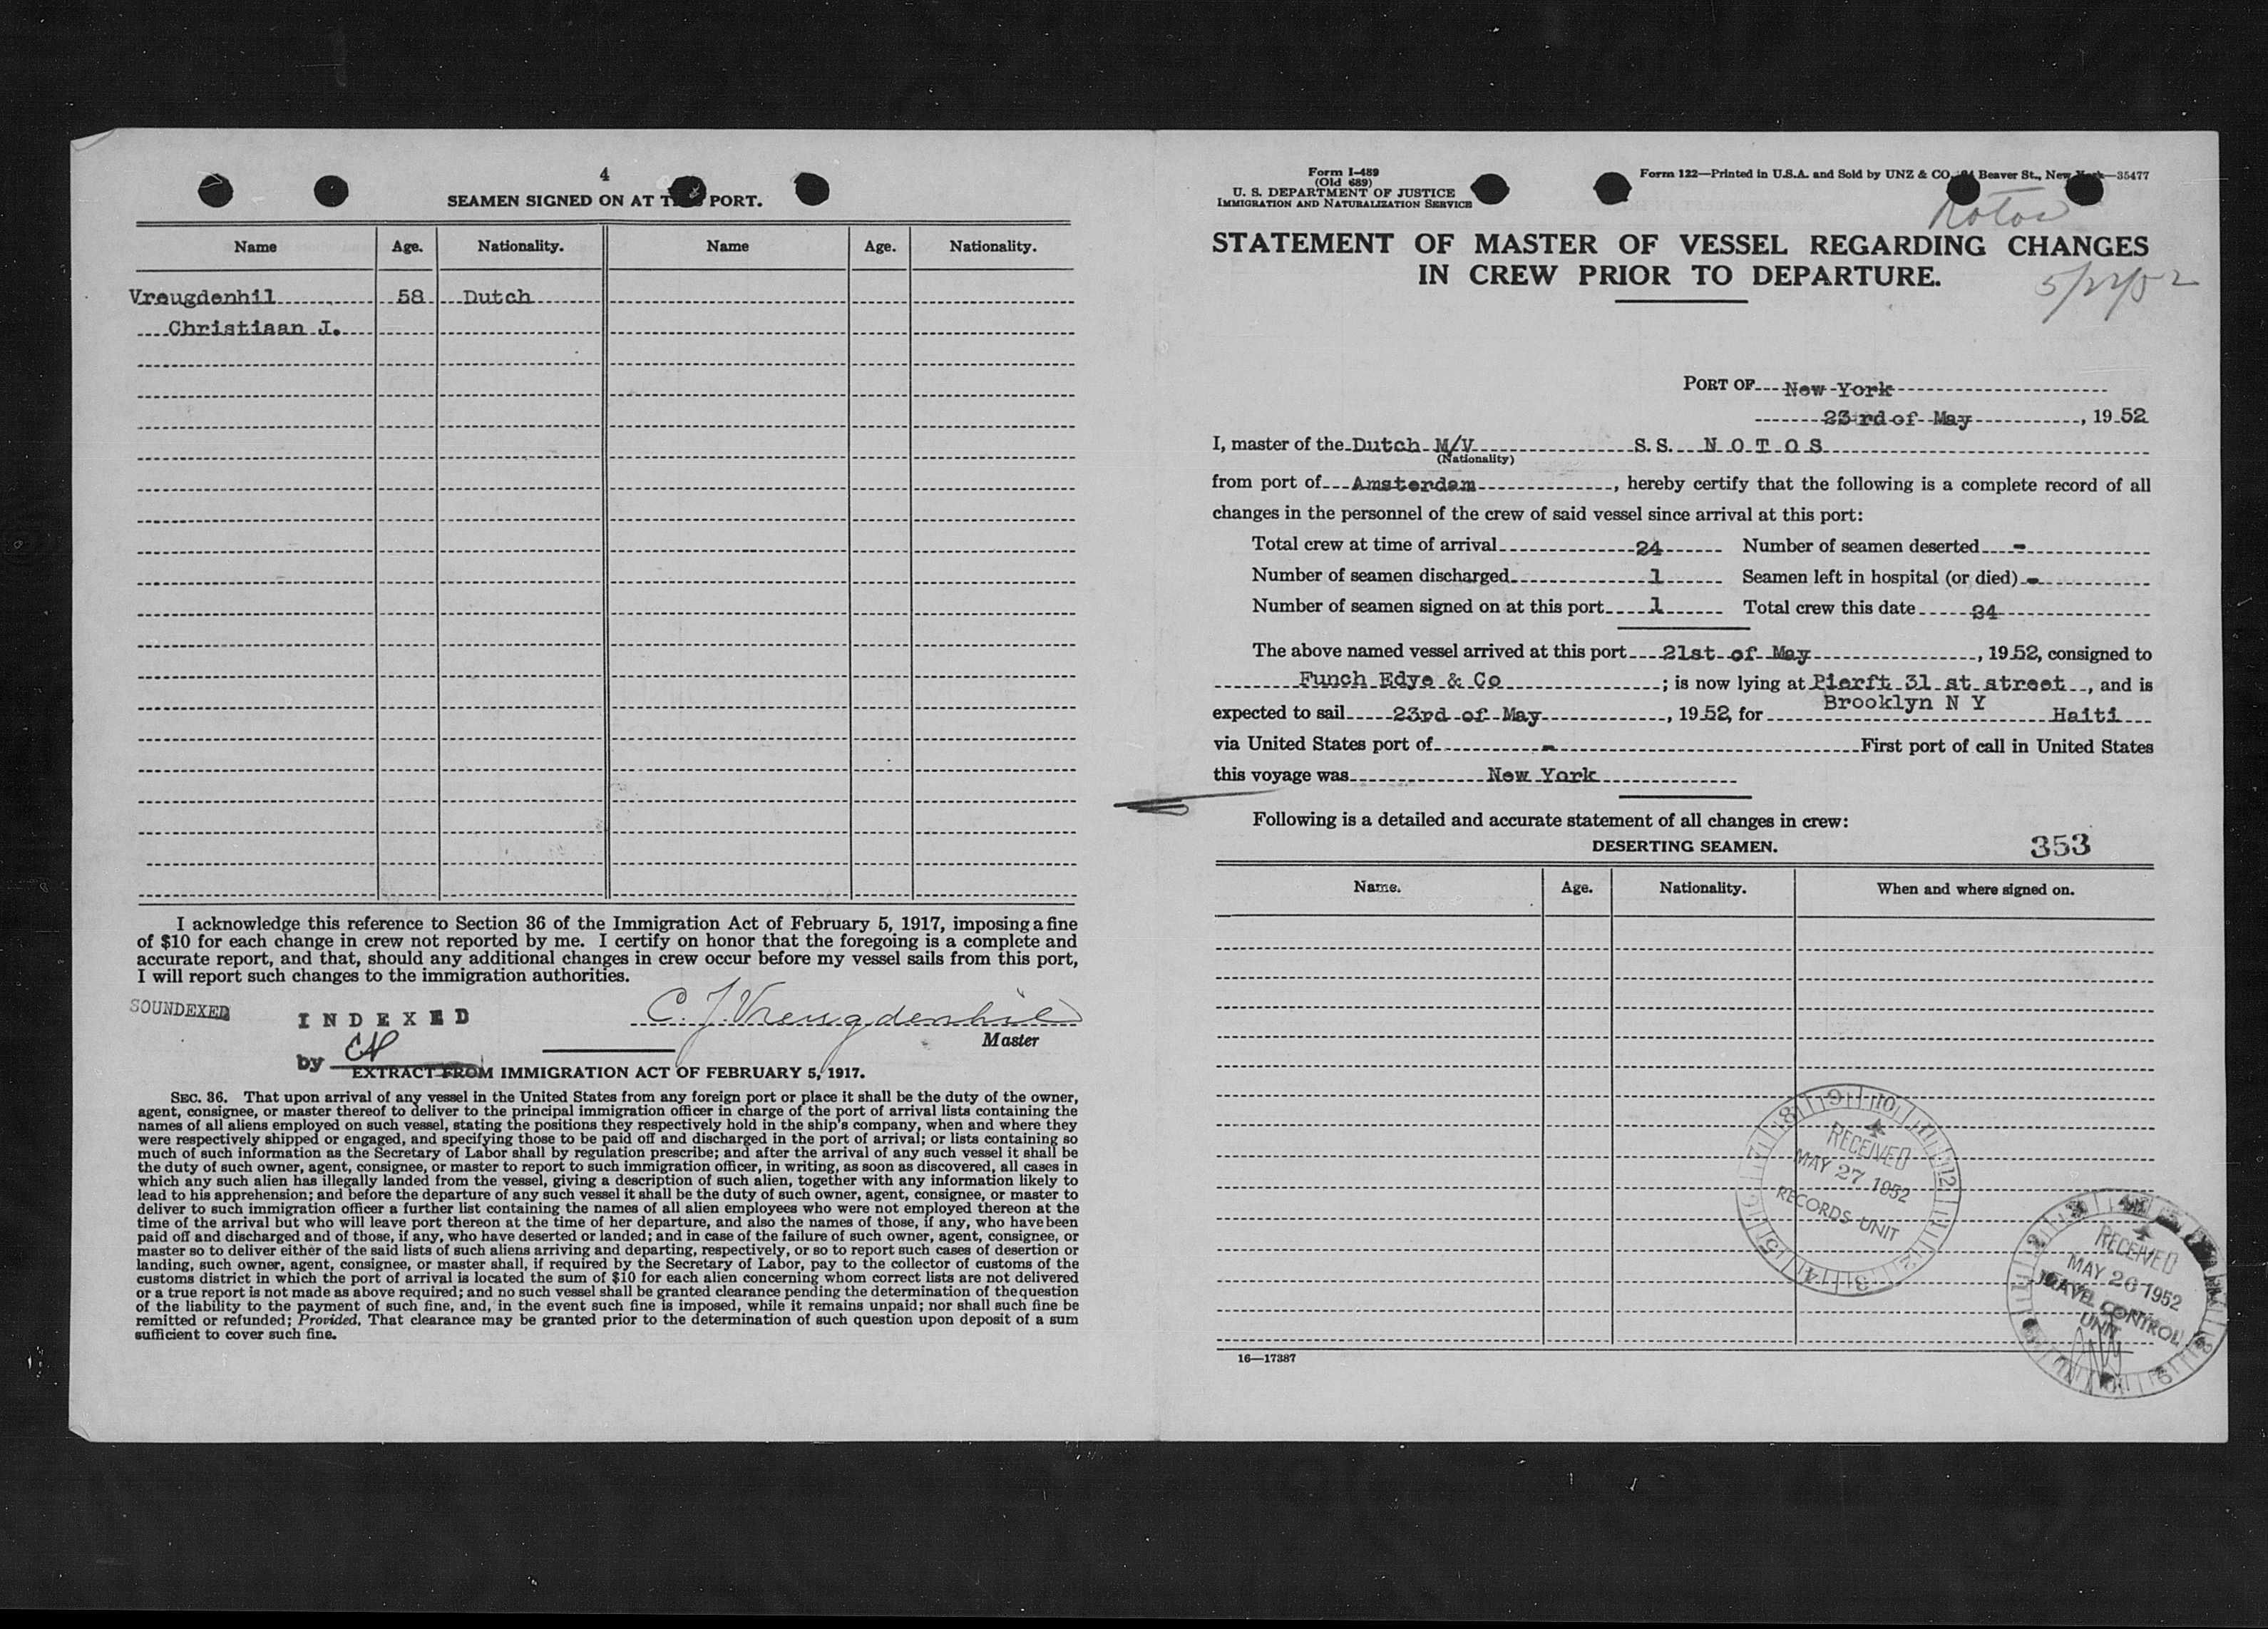 4
SEAMEN SIGNED ON AT PORT.
Name Age. Nationality. Name Age. Nationality.
Vreugdenhil 58 Dutch
Christiaan J.
I acknowledge this reference to Section 36 of the Immigration Act of February 5, 1917, imposing a fine
of $10 for each change in crew not reported by me. I certify on honor that the foregoing is a complete and
accurate report, and that, should any additional changes in crew occur before my vessel sails from this port,
I will report such changes to the immigration authorities.
SOUNDEXED
INDEXED
C. J. Vreugdenhil
Master
by
EXTRACT FROM IMMIGRATION ACT OF FEBRUARY 5, 1917.
SEC. 36. That upon arrival of any vessel in the United States from any foreign port or place it shall be the duty of the owner,
agent, consignee, or master thereof to deliver to the principal immigration officer in charge of the port of arrival lists containing the
names of all aliens employed on such vessel, stating the positions they respectively hold in the ship's company, when and where they
were respectively shipped or engaged, and specifying those to be paid off and discharged in the port of arrival; or lists containing so
much of such information as the Secretary of Labor shall by regulation prescribe; and after the arrival of any such vessel it shall be
the duty of such owner, agent, consignee, or master to report to such immigration officer, in writing, as soon as discovered, all cases in
which any such alien has illegally landed from the vessel, giving a description of such alien, together with any information likely to
lead to his apprehension; and before the departure of any such vessel it shall be the duty of such owner, agent, consignee, or master to
deliver to such immigration officer a further list containing the names of all alien employees who were not employed thereon at the
time of the arrival but who will leave port thereon at the time of her departure, and also the names of those, if any, who have been
paid off and discharged and of those, if any, who have deserted or landed; and in case of the failure of such owner, agent, consignee, or
master so to deliver either of the said lists of such aliens arriving and departing, respectively, or so to report such cases of desertion or
landing, such owner, agent, consignee, or master shall, if required by the Secretary of Labor, pay to the collector of customs of the
customs district in which the port of arrival is located the sum of $10 for each alien concerning whom correct lists are not delivered
or a true report is not made as above required; and no such vessel shall be granted clearance pending the determination of the question
of the liability to the payment of such fine, and, in the event such fine is imposed, while it remains unpaid; nor shall such fine be
remitted or refunded; Provided, That clearance may be granted prior to the determination of such question upon deposit of a sum
sufficient to cover such fine.
Form I-489
(Old 689)
U. S. DEPARTMENT OF JUSTICE
IMMIGRATION AND NATURALIZATION SERVICE
Form 122—Printed in U.S.A. and Sold by UNZ & CO. Beaver St., New —35477
STATEMENT OF MASTER OF VESSEL REGARDING CHANGES
IN CREW PRIOR TO DEPARTURE.
PORT OF New York
23 rd of May, 19 52
I, master of the Dutch M/V S. S. N O T O S
(Nationality)
from port of Amsterdam, hereby certify that the following is a complete record of all
changes in the personnel of the crew of said vessel since arrival at this port:
Total crew at time of arrival 24 Number of seamen deserted -
Number of seamen discharged 1 Seamen left in hospital (or died) -
Number of seamen signed on at this port 1 Total crew this date 24
The above named vessel arrived at this port 21st of May, 19 52, consigned to
Funch Edye & Co; is now lying at Pierft 31 st street, and is
Brooklyn N Y
expected to sail 23rd of May, 19 52, for Haiti
via United States port of - First port of call in United States
this voyage was New York
Following is a detailed and accurate statement of all changes in crew:
353
DESERTING SEAMEN.
Name. Age. Nationality. When and where signed on.
RECEIVED
MAY 27 1952
RECORDS UNIT
RECEIVED
MAY 26 1952
TRAVEL CONTROL
UNIT
16—17387